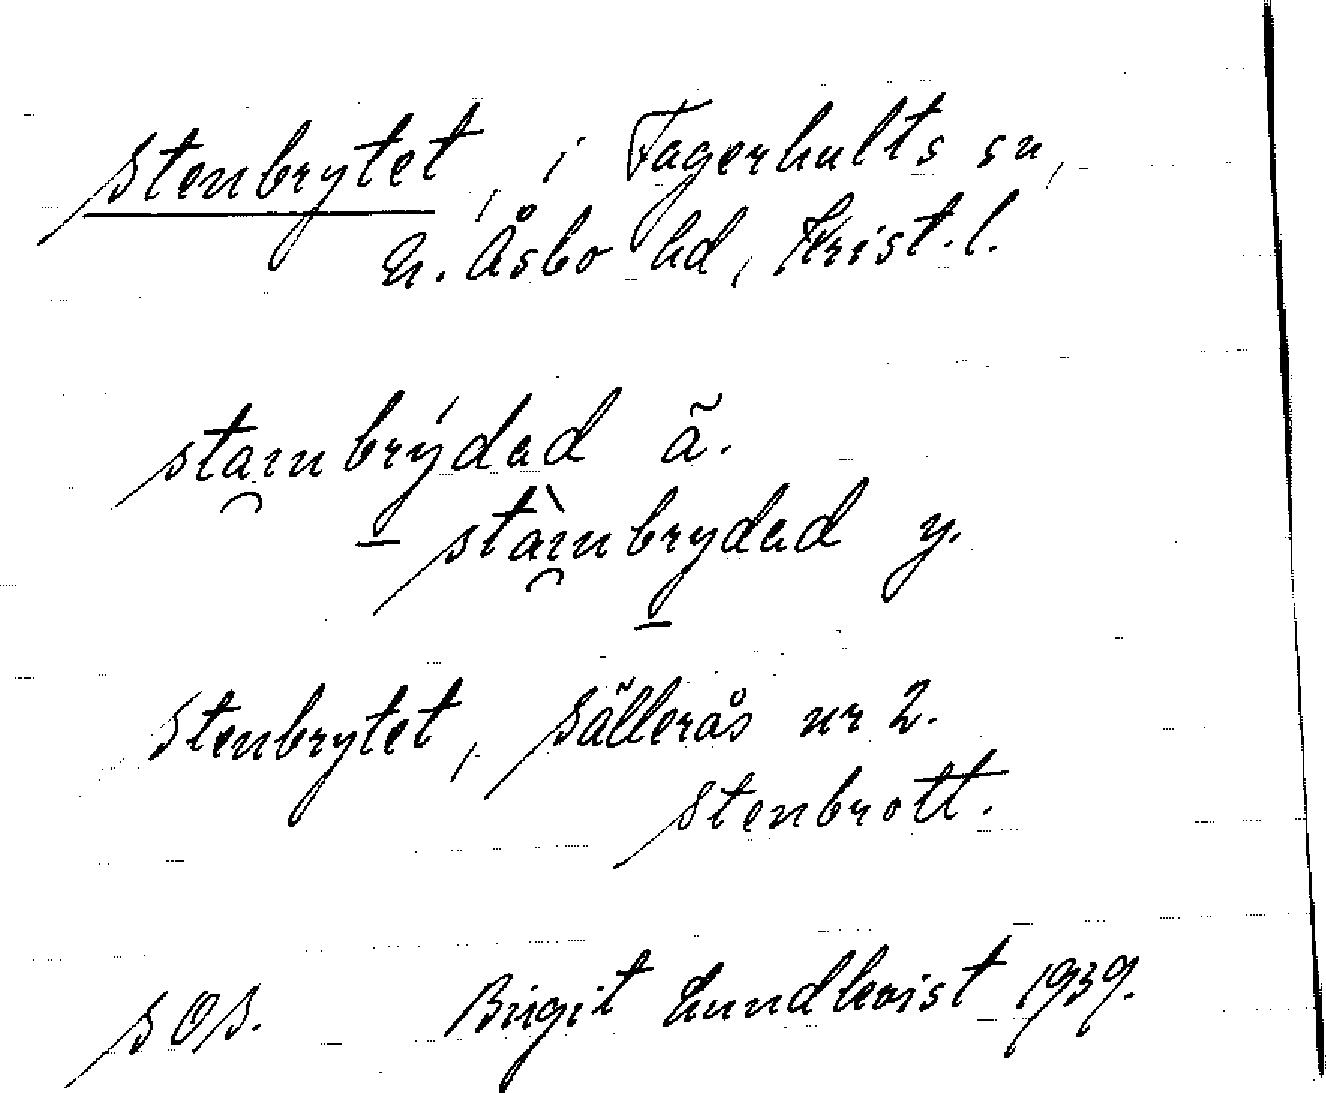 Stenbrytet, i Fagerhults sn,
N. Åsbo hd, Krist. l.
stai̯nbrýdad ã.
stài̯nbrydad y.
Stenbrytet, Sällerås nr 2.
Stenbrott.
SOS. Birgit Lundkvist 1939.